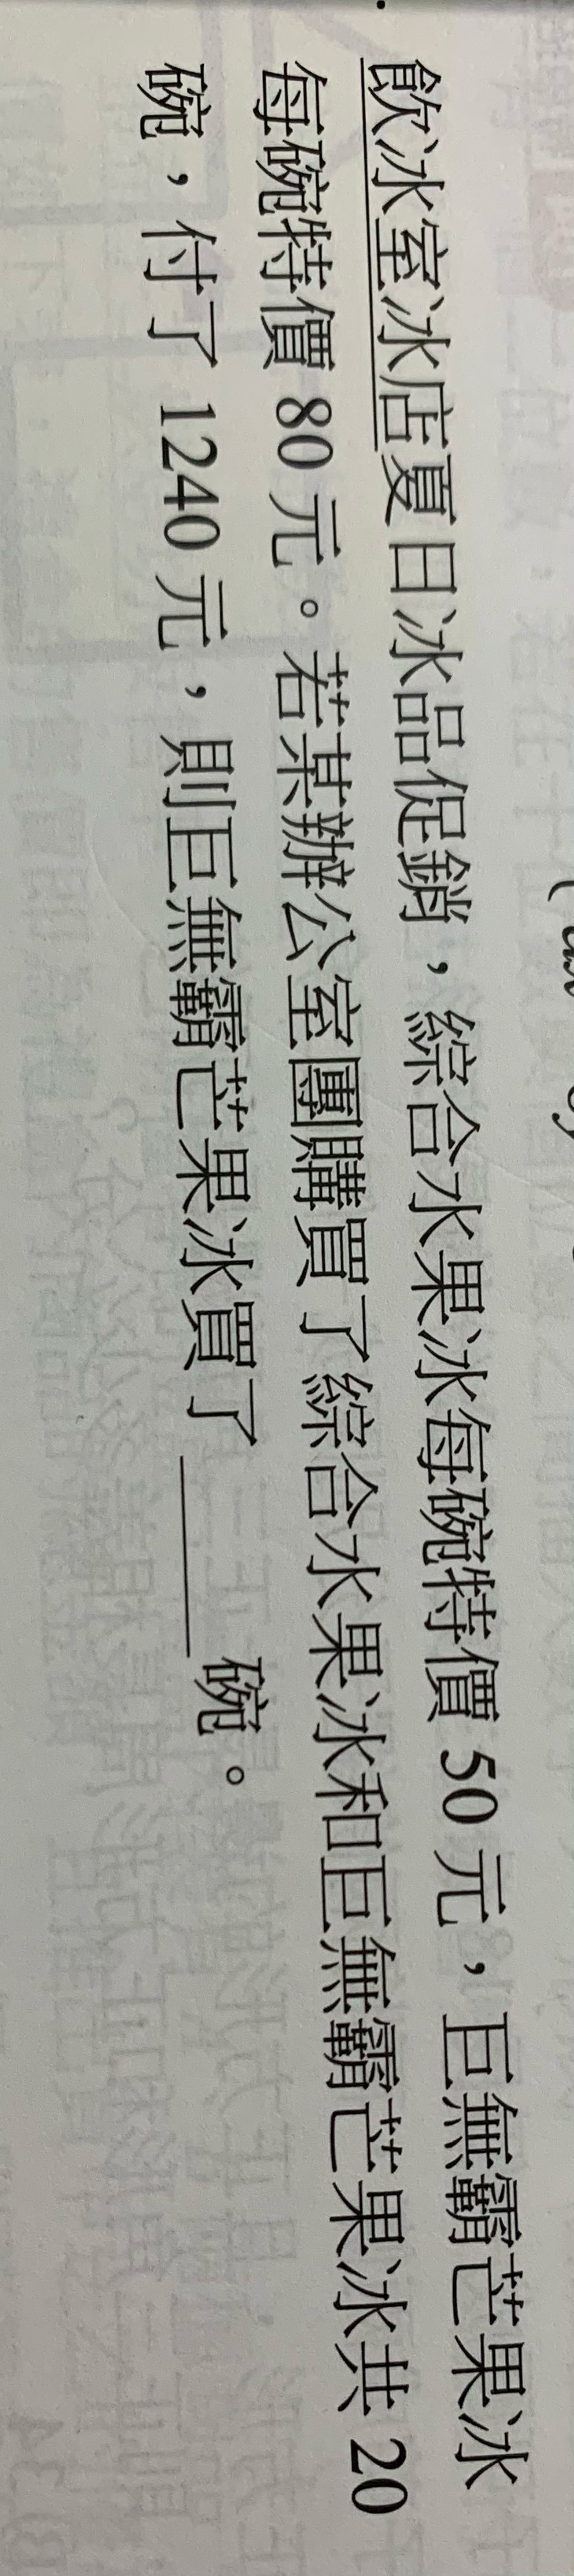 飲冰室冰店夏日冰品促銷，綜合水果冰每碗特價 50 元，巨無霸芒果冰
每碗特價 80 元。若某辦公室團購買了綜合水果冰和巨無霸芒果冰共 20
碗，付了 1240 元，則巨無霸芒果冰買了______碗。